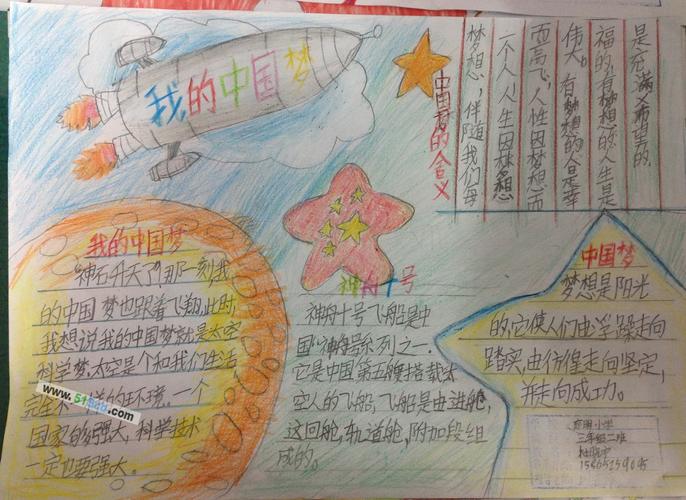 我的中国梦
中国梦的含义
梦想，伴随我们每
一个人，人生因梦想
而高飞，人性因梦想而
伟大。有梦想的人是幸
福的，有梦想的人生是
是充满义希望的.
我的中国梦
“神石升天了”那一刻，我
的中国梦也跟着飞翔，此时，
我想说我的中国梦就是太空
科学梦，太空是个和我们生活
完全不一样的环境，一个
国家的强大，科学技术
一定也要强大。
神舟十号
神舟十号飞船是中
国“神舟”号系列之一.
它是中国第五艘搭载太
空人的飞船，飞船是由进舱，
返回舱，轨道舱，附加段组
成的。
中国梦
梦想是阳光
的，它使人们由浮躁走向
踏实，由彷徨走向坚定，
并走向成功。
小学
三年级二班
www.51
.com